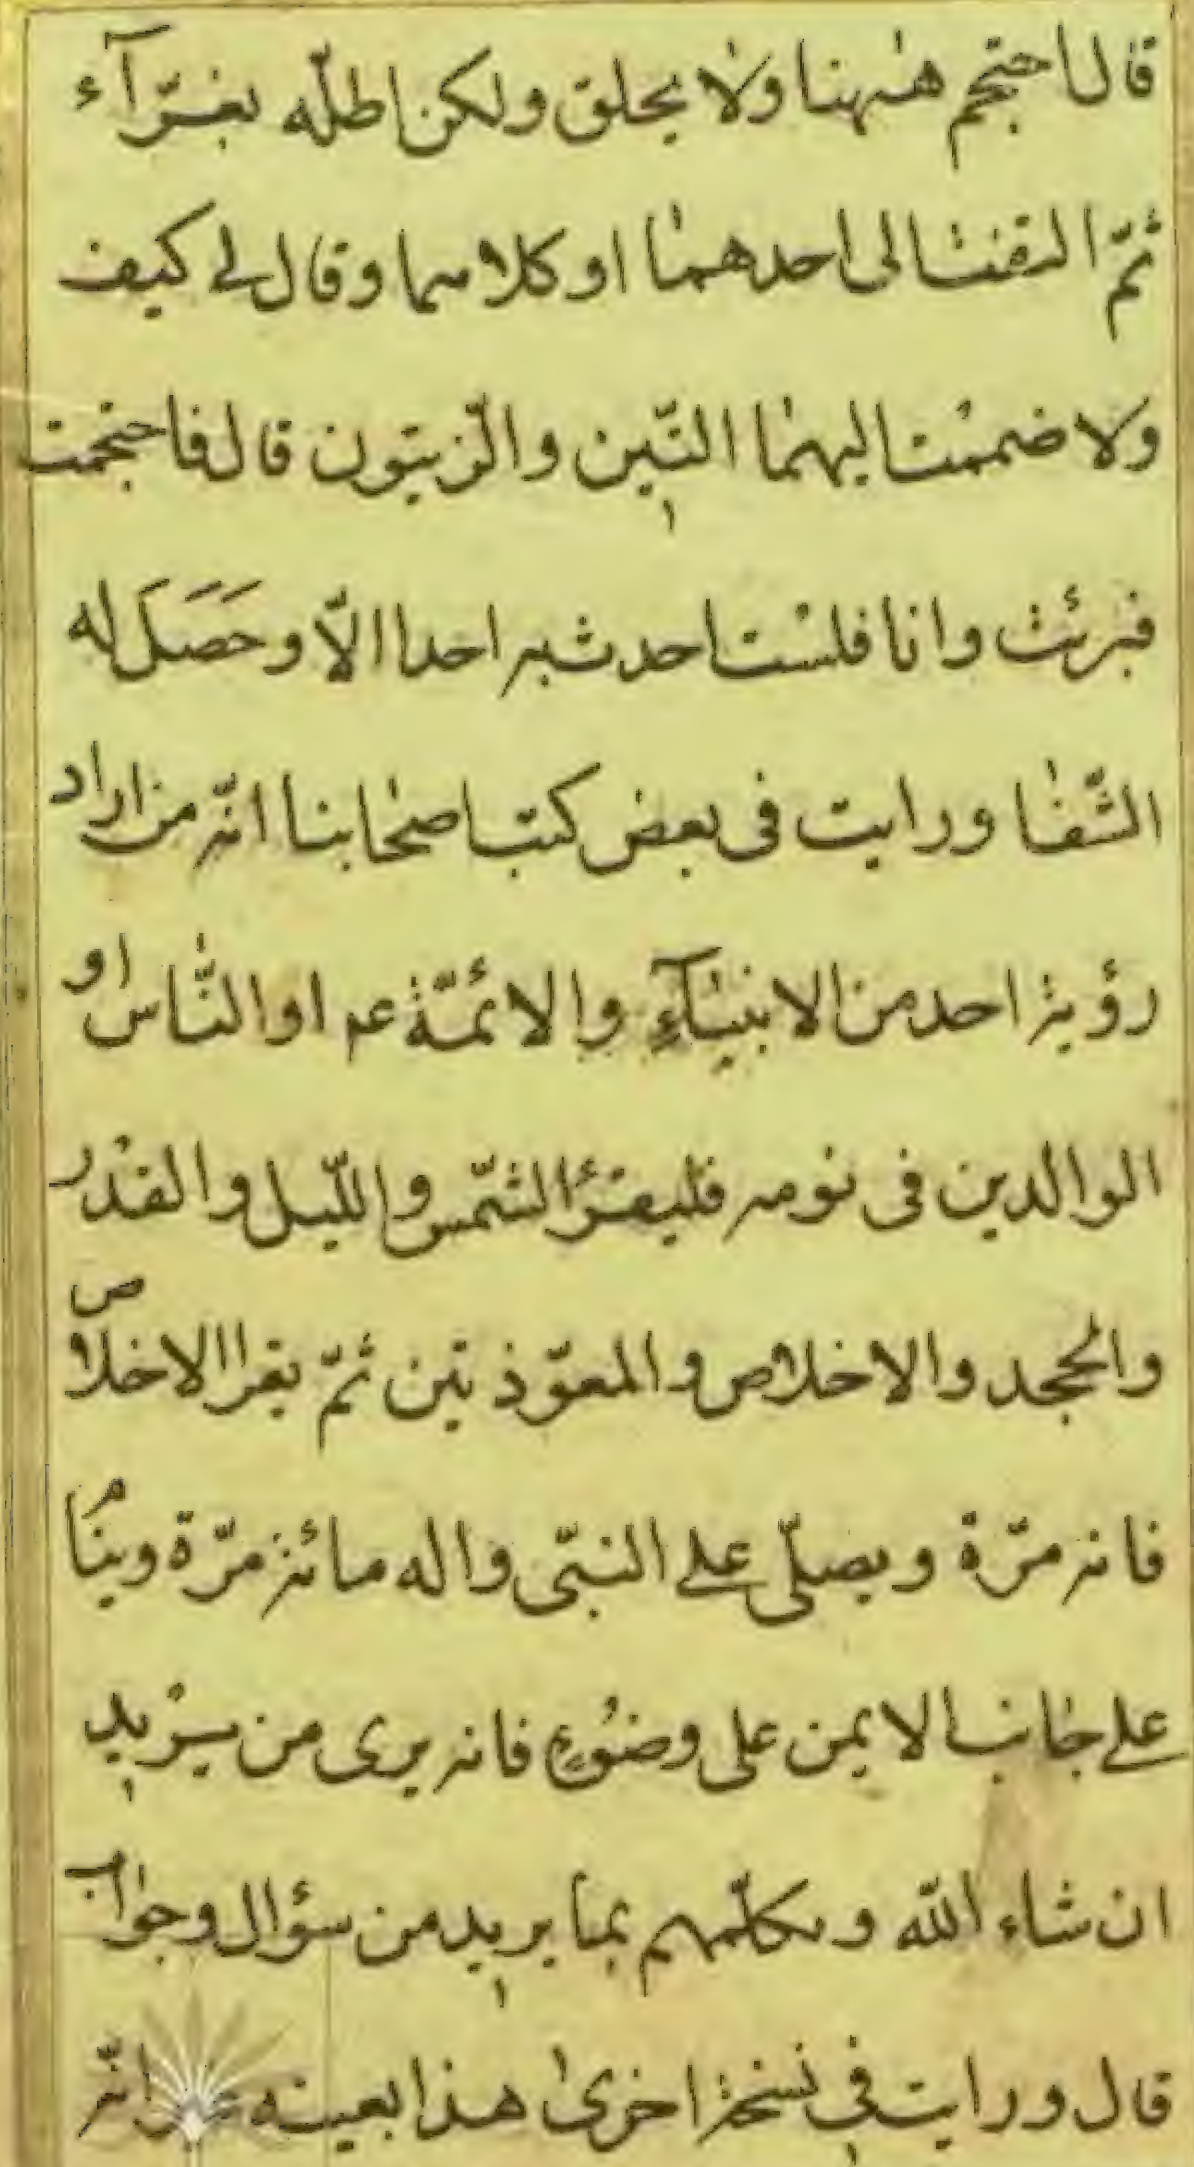 قال احتجم هٰهنا ولا يحلق ولكن اطله بغرّآء
ثمّ التفتا لى احدهما او كلاهما وقال لى كيف
ولا ضممت اليهما التّين والزّيتون قال فاحتجمت
فبرئت وانا فلست احدث به احدا الاّ وحَصَل له
الشّفا ورايت فى بعض كتب اصحابنا انّه من اراد
رؤية احد من الانبيآء والائمّة عم او النّاس او
الوالدين فى نومه فليقرأ الشّمس واللّيل والقدر
والجحد والاخلاص والمعوّذتين ثمّ يقرا الاخلاص
مائة مرّة ويصلّى على النبّى واله مائة مرّة وينام
على جانب الايمن على وضوء فانه يرى من يريد
ان شاء اللّه ويكلّمهم بما يريد من سؤال وجواب
قال ورايت فى نسخة اخرى هذا بعينه غير انّه